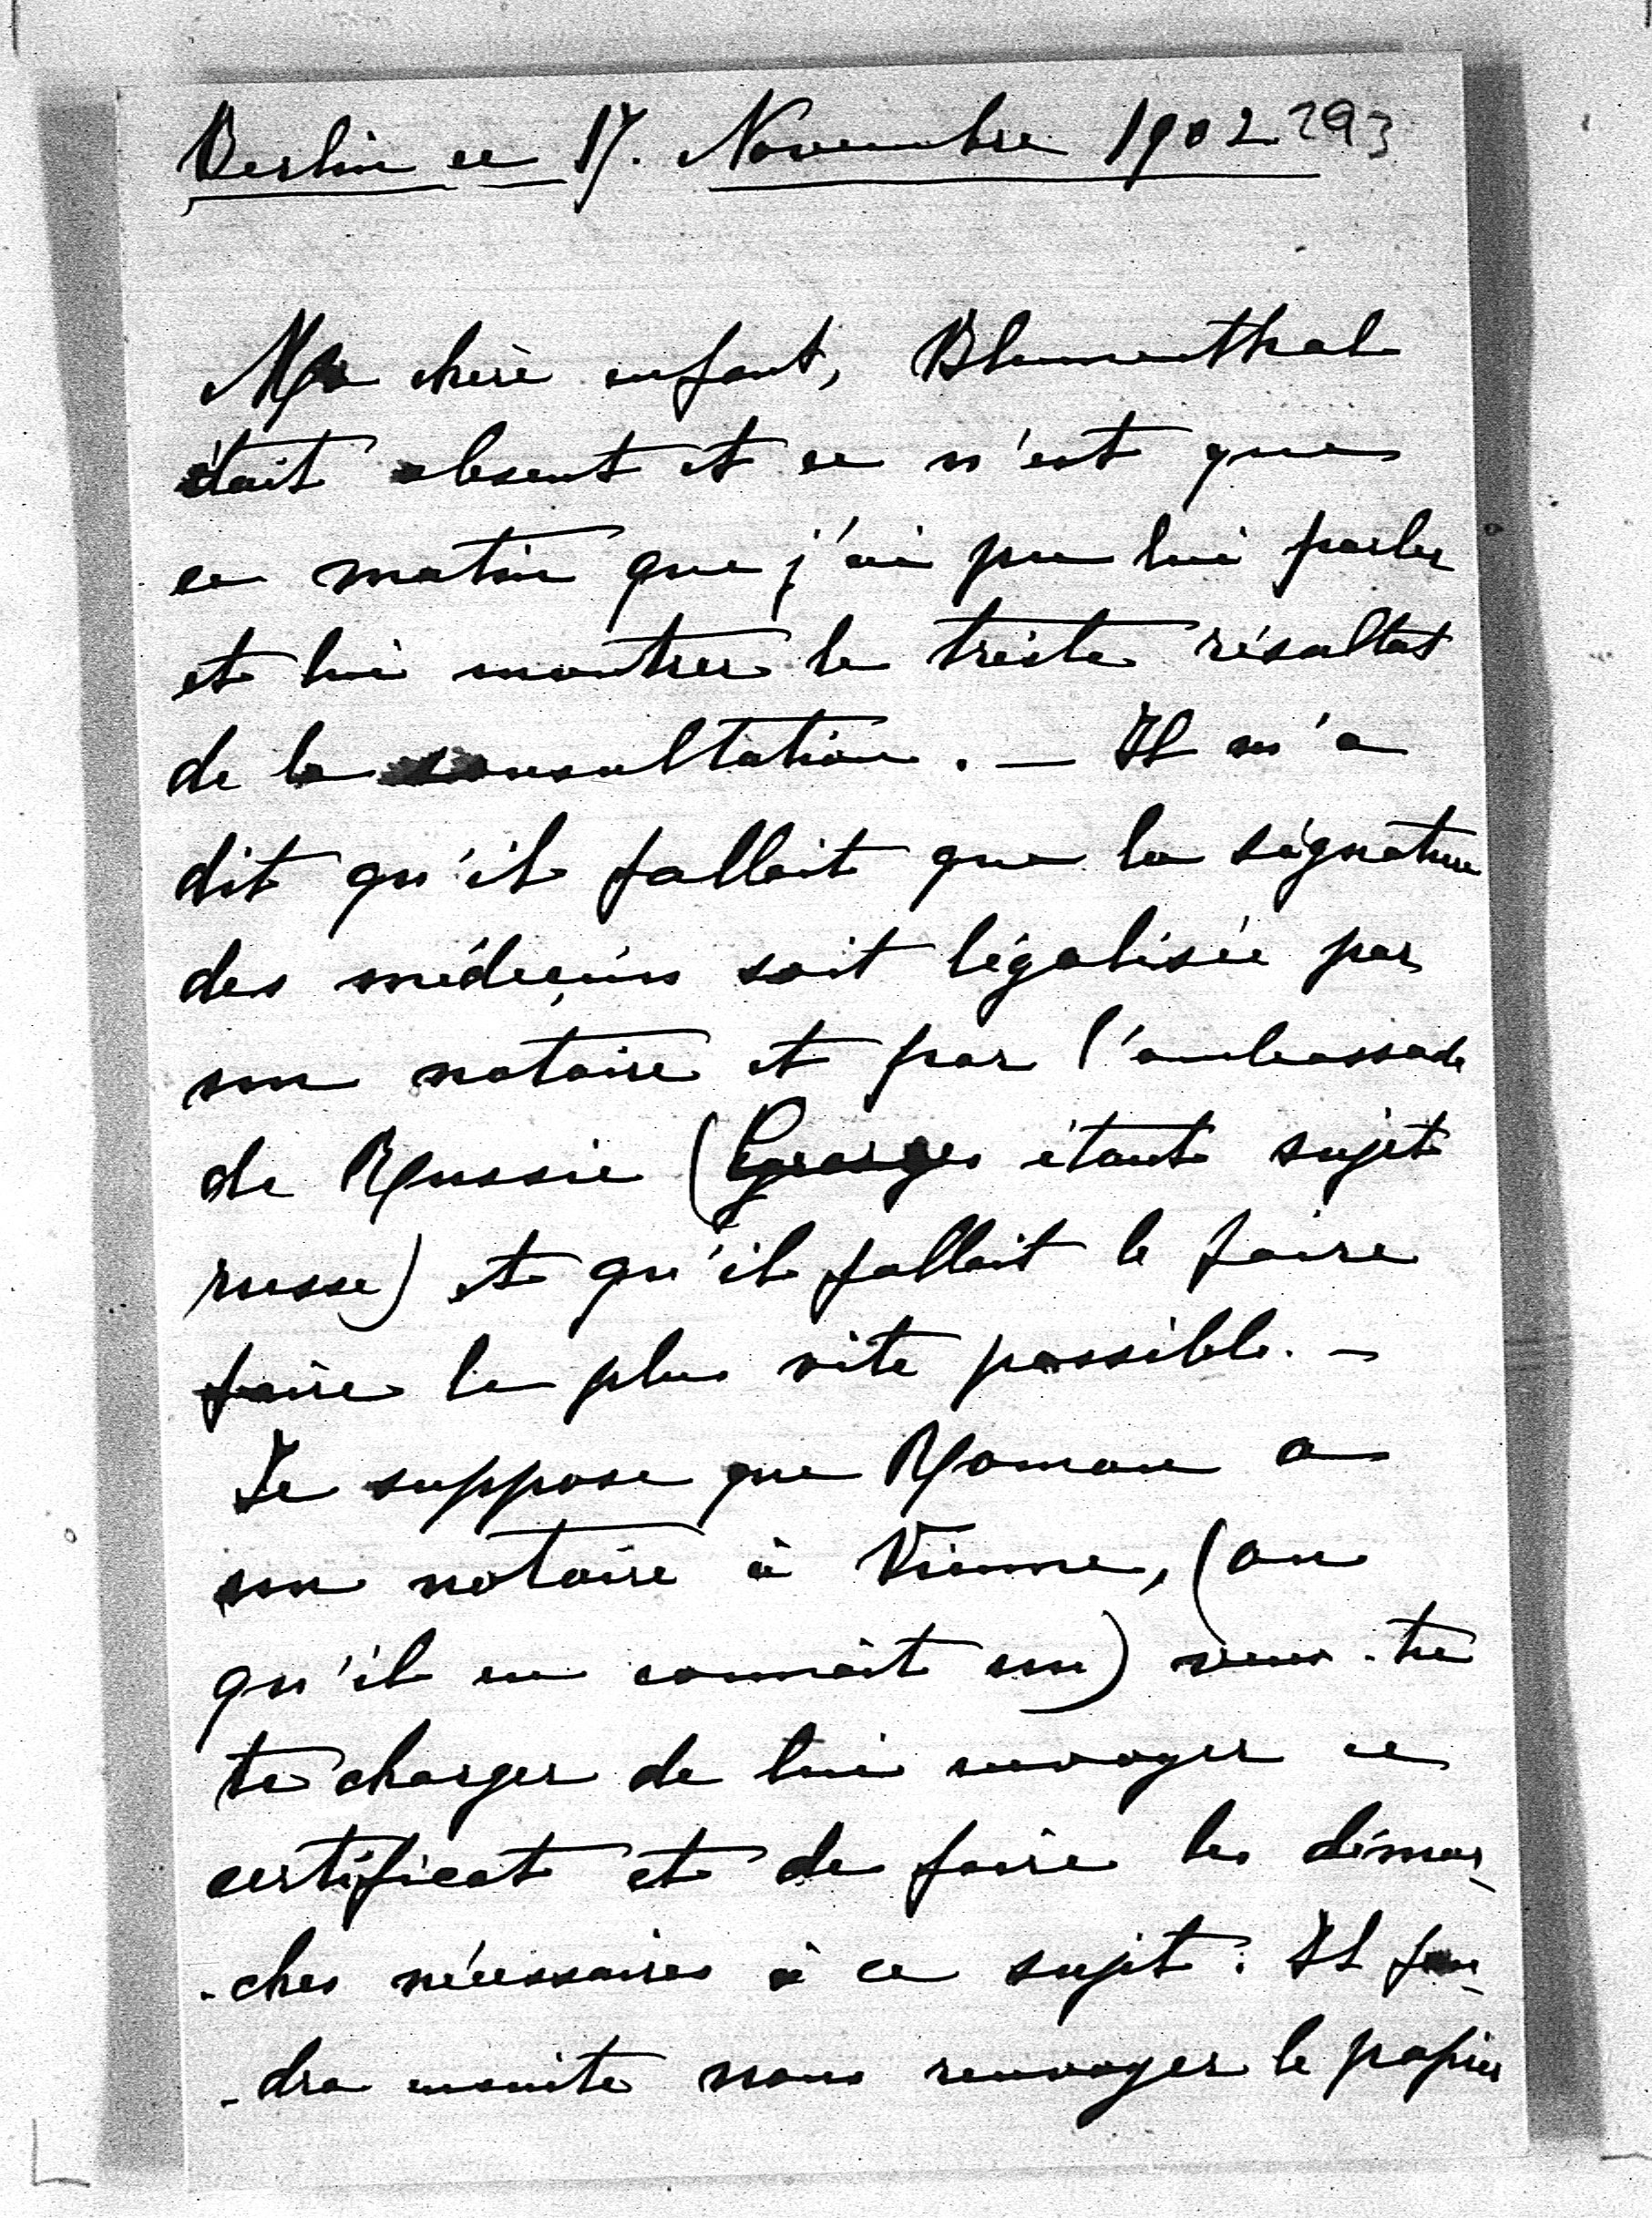 Berlin ce 17. Novembre 1902 293
Ma chère enfant, Blumenthal
était absent et ce n'est que
ce matin que j'ai pu lui parler
et lui montrer le triste résultat
de la consultation. — Il m'a
dit qu'il fallait que la signature
des médecins soit légalisée par
un notaire et par l'ambassade
de Russie (Georges étant sujet
russe) et qu'il fallait le faire
faire le plus vite possible. —
Je suppose que Roman a
un notaire à Vienne, (ou
qu'il en connait un) veux-tu
te charger de lui envoyer ce
certificat et de faire les démar-
-ches nécessaires à ce sujet. Il fau-
-dra ensuite nous renvoyer le papier